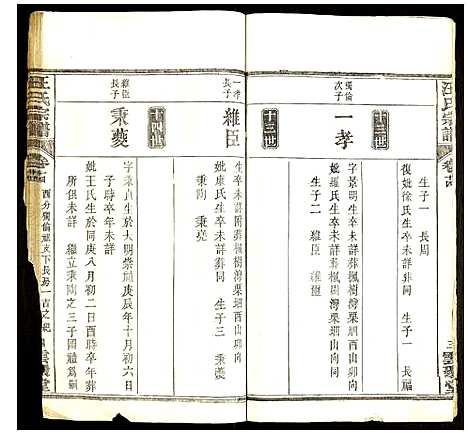 汪氏宗譜
卷
三
雲
堂
生子一 長周
復妣徐氏生卒未詳葬同 生子一 長福
十三世
獨倫
次子
一孝
字景明生卒未詳葬楓樹灣栗垇西山卯向
妣羅氏生卒未詳葬楓樹灣栗垇山卯向同
生子二 繼臣 繼
一孝
長子
繼臣
生卒未詳附葬楓樹灣栗垇西山卯向
妣康氏生卒未詳葬同 生子三 秉夔
秉陶 秉堯
十四世
繼臣
長子
秉夔
字秉貞生於大明崇禎庚辰年十月初六日
子時卒年未詳
妣王氏生於同庚八月初二日酉時卒年葬
所俱未詳 繼立秉陶之三子國禮為嗣
汪氏宗譜
卷
西分獨倫祖支下長房一
四
雲
堂